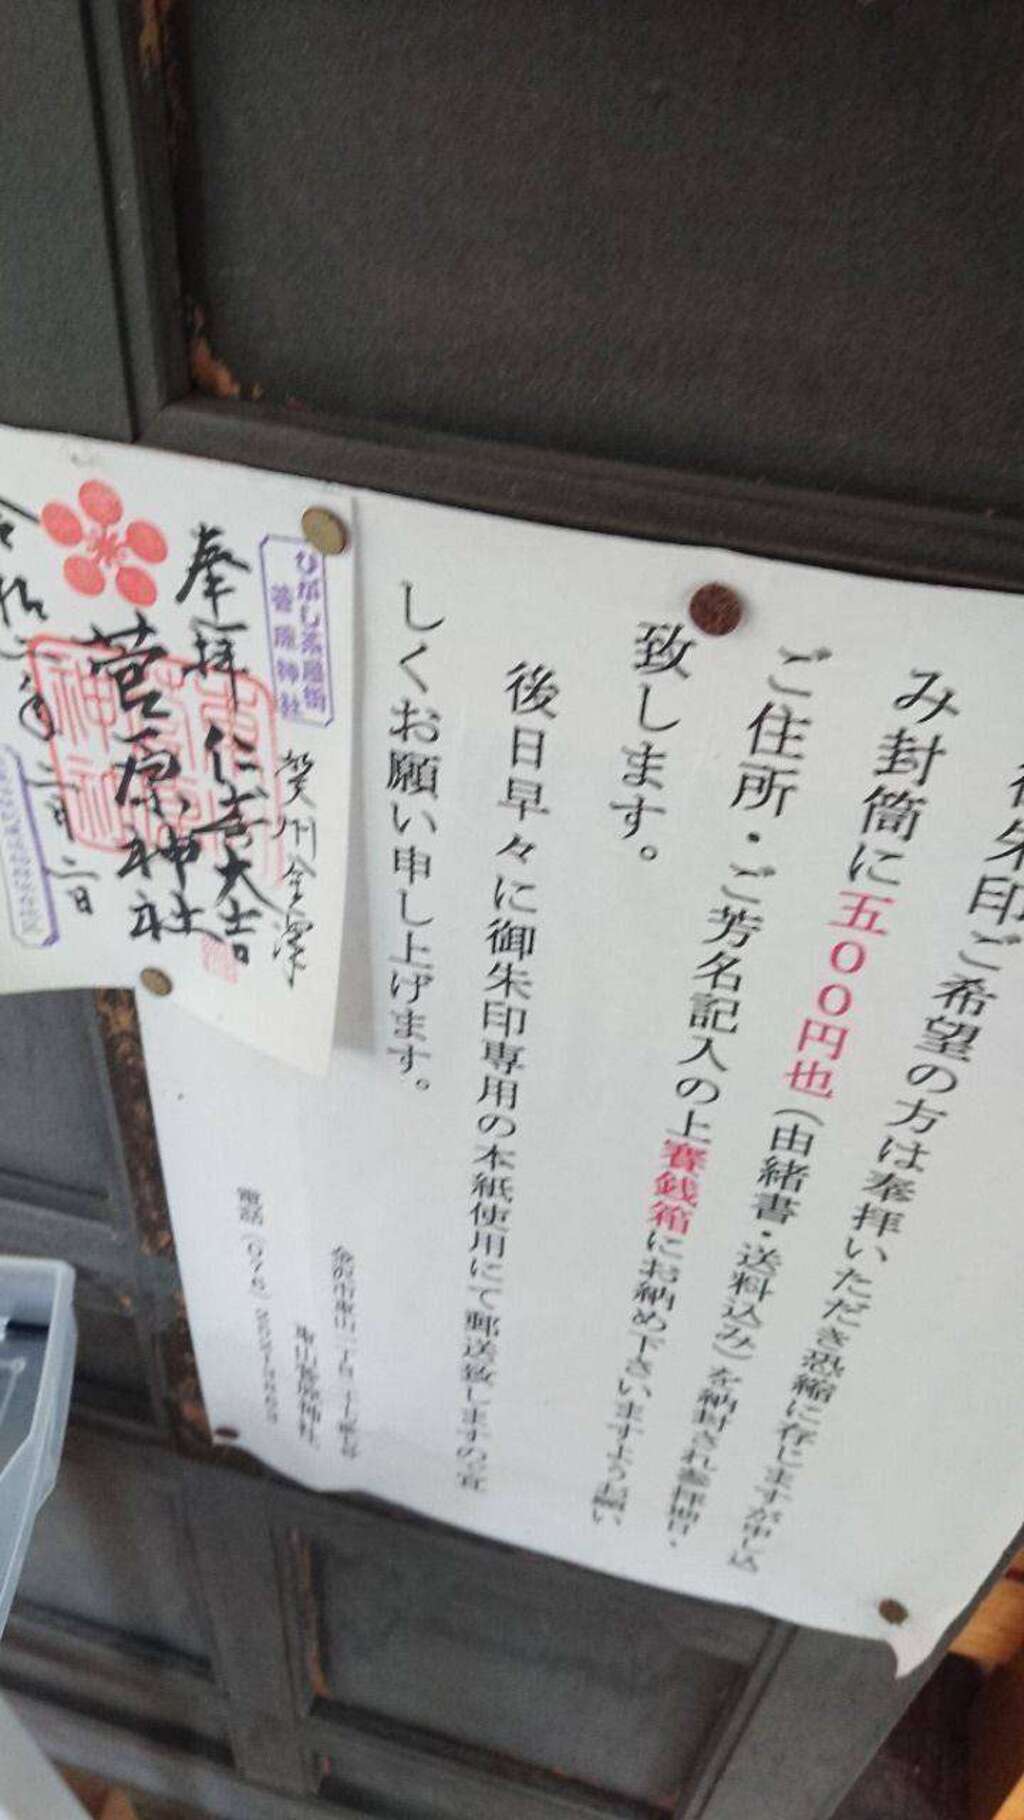 御朱印ご希望の方は参拝いただき恐縮に存じますが申込
み封筒に五００円也（由緒書・送料込み）を納封され参拝日・
ご住所・ご芳名記入の上賽銭箱にお納め下さいますようお願い
致します。
後日早々に御朱印専用の本紙使用にて郵送致しますので宜
しくお願い申し上げます。
東山菅原神社
ひがし茶屋街
菅原神社
奉拝
菅原神社